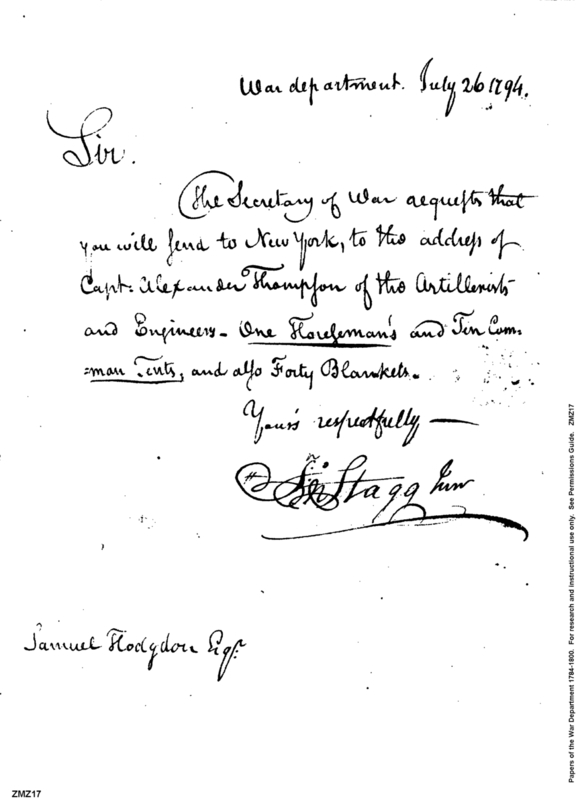 War department. July 26 1794.
Sir.
The Secretary of War requests that
you will send to New York, to the address of
Capt: Alexander Thompson of the Artillerists
and Engineers - One Horseman's and Ten Com=
=mon Tents, and also Forty Blankets.
Your's respectfully —
Jno Stagg Junr
Samuel Hodgdon Esqr:
Papers of the War Department 1784-1800. For research and instructional use only. See Permissions Guide. ZMZ17
ZMZ17